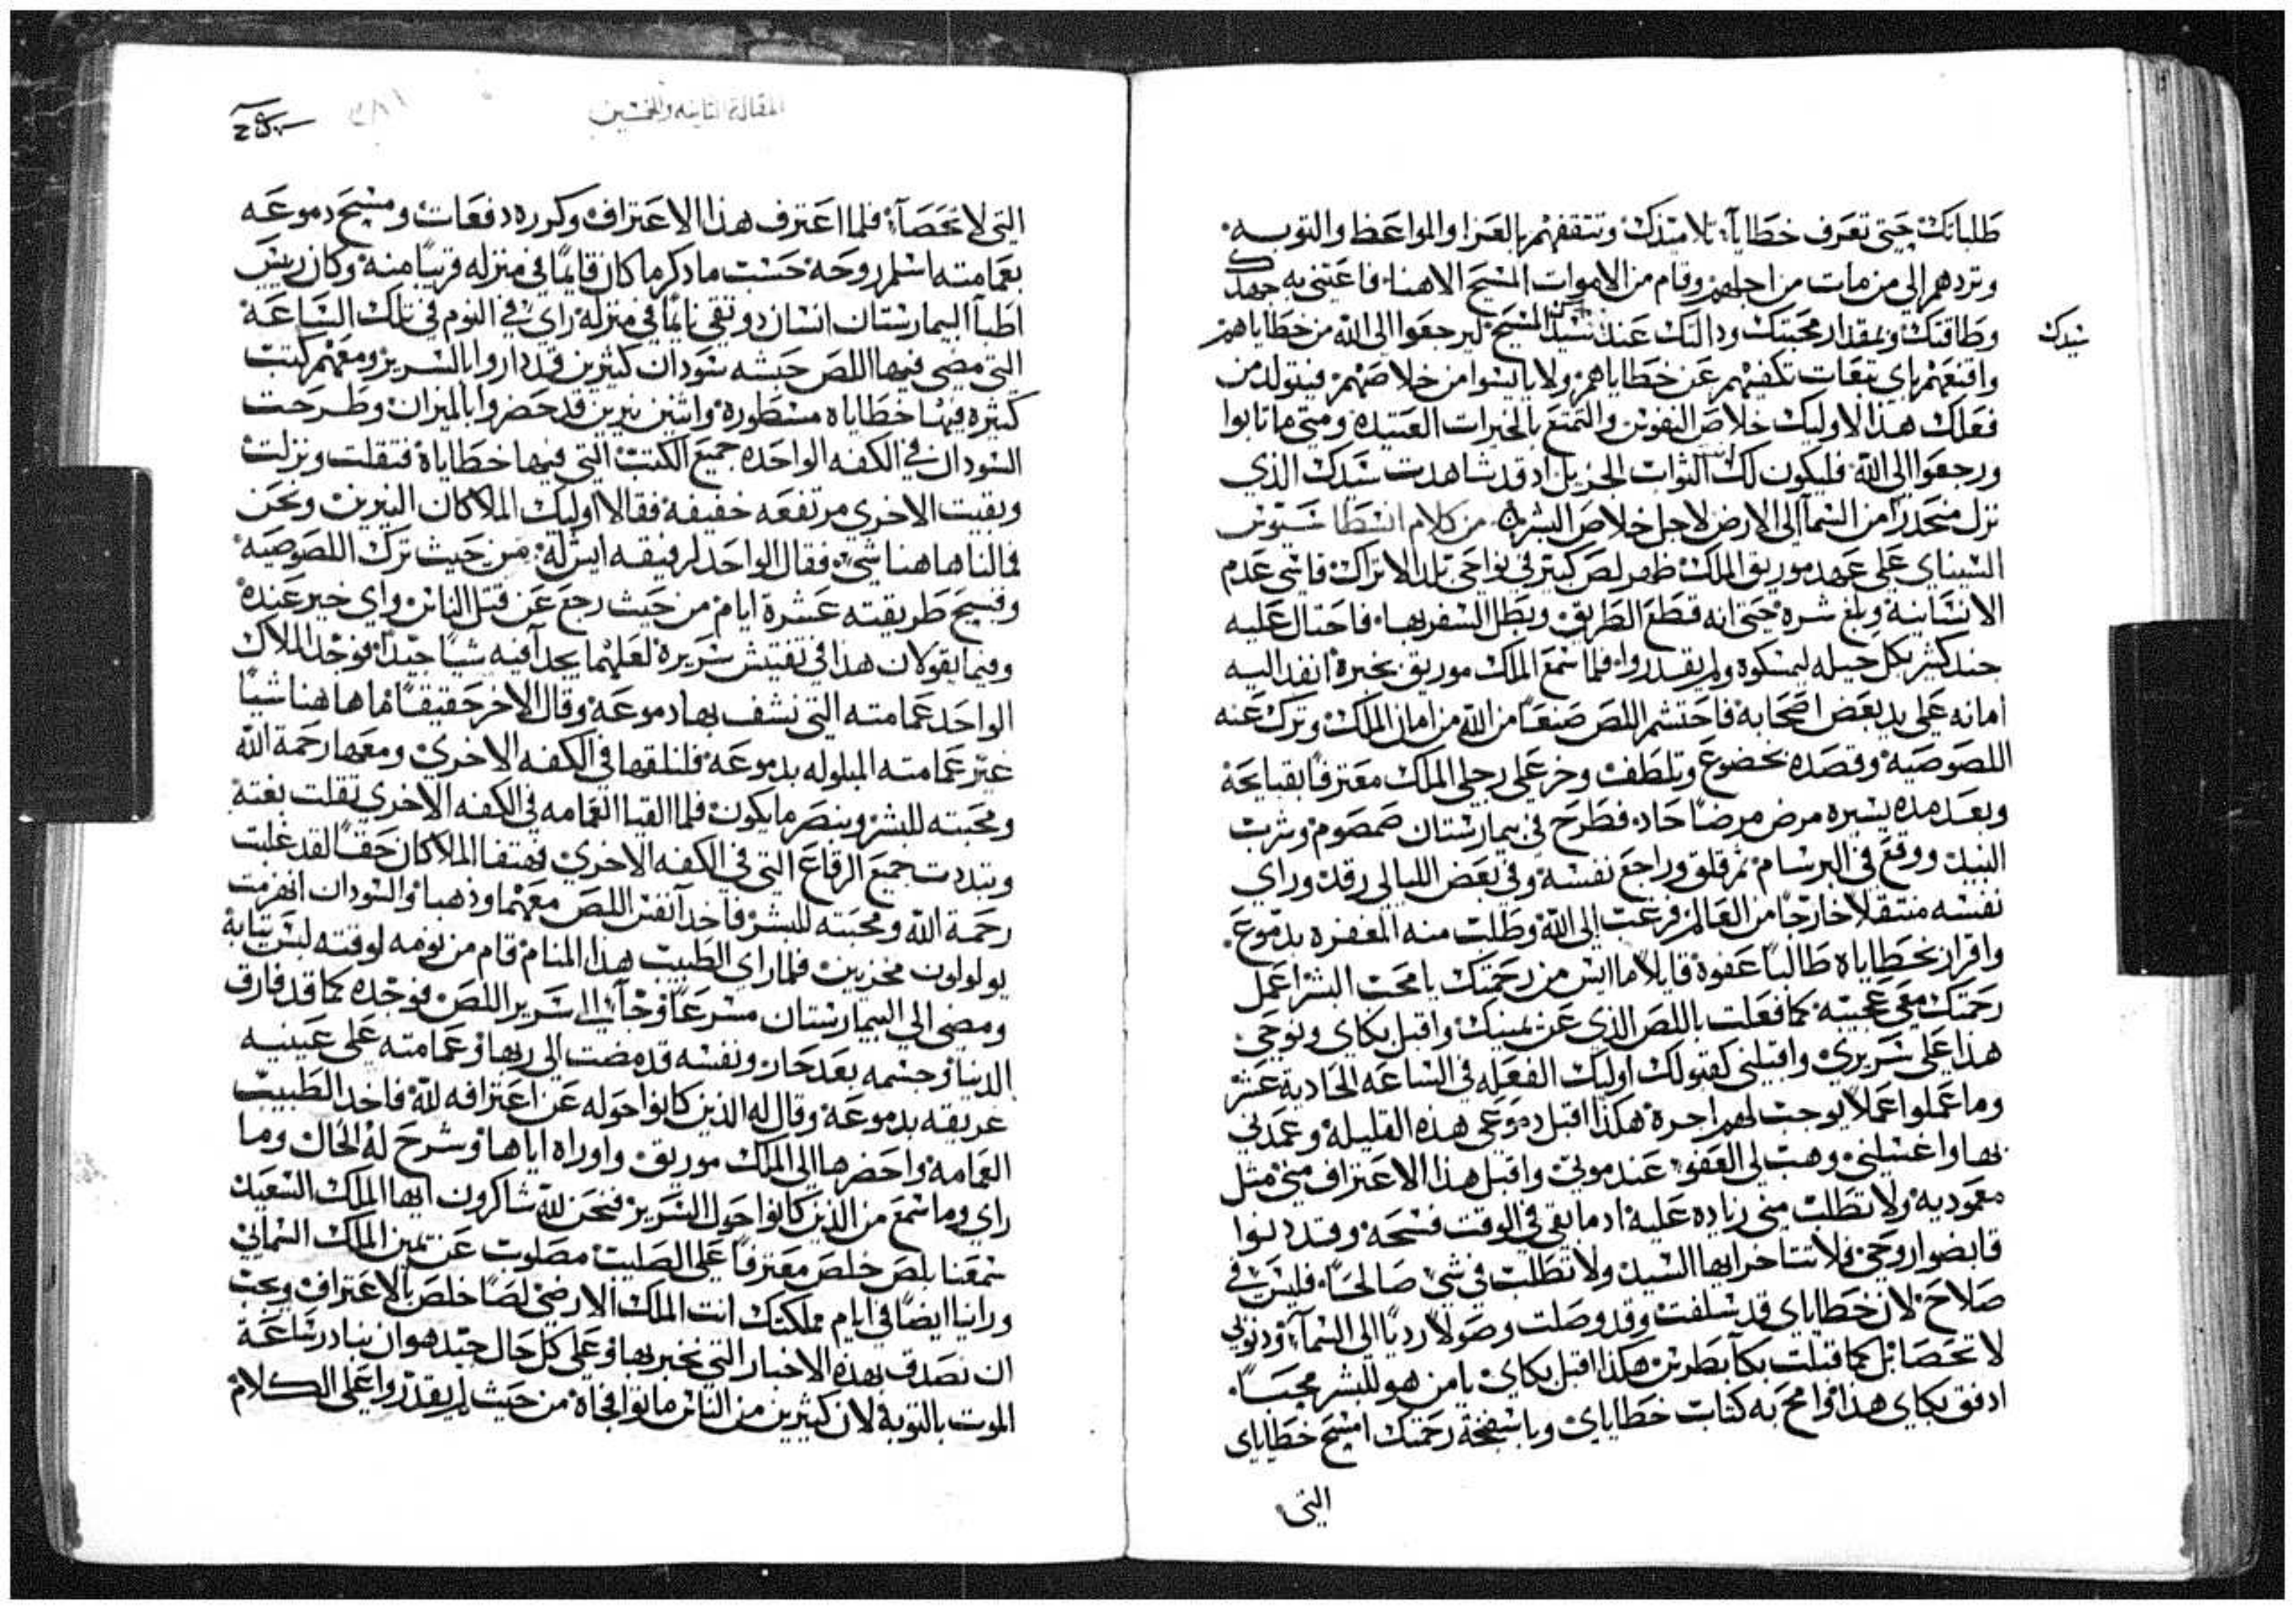 طلباتك حتى تعرف خطايا تلاميذك وتثقفهم بالعزا والمواعظ والتوبه
وتردهم الى من مات من اجلهم وقام من الاموات المسيح الاهنا فاعتني به جهدك
وطاقتك وبمقدار محبتك ودالتك عند سيدك المسيح ليرجعوا الى الله من خطاياهم
سيدك
واقنعهم باي تبعات تكفيهم عن خطاياهم ولا يايسوا من خلاصهم فيتولد من
فعلك هذا لاوليك خلاص النفوس والتمتع بالخيرات العتيده ومتى ما تابوا
ورجعوا الى الله فليكون لك الثواب الجزيل اد قد شاهدت سيدك الذي
نزل منحدرًا من السما الى الارض لاجل خلاص البشر من كلام انسطاسيوس
السيناي على عهد موريق الملك ظهر لص كبير في نواحي بلد الاتراك قاسي عدم
الانسانيه وبلغ شره حتى انه قطع الطريق وبطل السفر بها فاحتال عليه
جند كثير بكل حيله ليمسكوه ولم يقدروا فلما سمع الملك موريق بخبره انفد اليه
امانه على يد بعض اصحابه فاحتشم اللص صنعًا من الله من امان الملك وترك عنه
اللصوصيه وقصده بخضوع وتلطف وخر على رجلي الملك معترفًا بقبايحه
وبعد مده يسيره مرض مرضًا حاد فطرح في بيمارستان صمصوم وشرب
النبيد ووقع في البرسام ثم قلق وراجع نفسه وفي بعض الليالي رقد وراي
نفسه منتقلا خارجًا من العالم فرغب الى الله وطلب منه المغفره بدموع
واقرار بخطاياه طالبًا عفوه قايلا ما ايس من رحمتك يا محب البشر اعمل
رحمتك معي عجيبه كما فعلت باللص الذي عن يمينك واقبل بكاي ونوحي
هذا على سريري واقبلني كقبولك اوليك الفعله في الساعه الحاديه عشر
وما عملوا عملًا يوجب لهم اجره هكذا اقبل دموعي هذه القليله وعمدني
بها واغسلني وهب لي العفو عند موتي واقبل هذا الاعتراف مني مثل
معموديه ولا تطلب مني زياده عليه اد ما بقي في الوقت فسحه وقد دنوا
قابضوا روحي فلا تتاخر ايها السيد ولا تطلب في شي صالحًا فليس في
صلاح لان خطاياي قد سلفت وقد وصلت وصولًا رديًا الى السما ودنوبي
لا تحصا بل كما قبلت بكا بطرس هكذا اقبل بكاي يا من هو للبشر محبًا
ادفق بكاي هذا وامح به كتاب خطاياي وباسفنجة رحمتك امسح خطاياي
التي
المقالة الثانيه والخمسين
٣٨١
التي لا تحصا فلما اعترف هذا الاعتراف وكرره دفعات ومسح دموعه
بعمامته اسلم روحه حسب ما دكر ما كان قايمًا في منزله قريبًا منه وكان رييس
اطبا البيمارستان انسان دو تقي نايمًا في منزله راي في النوم في تلك الساعه
التي مضى فيها اللص حبشه سودان كثيرين قد داروا بالسرير ومعهم كتب
كثيره فيها خطاياه مسطوره واثنين نيرين قد حضروا بالميزان وطرحت
السودان في الكفه الواحده جميع الكتب التي فيها خطاياه فتقلت ونزلت
وبقيت الاخري مرتفعه خفيفه فقالا اوليك الملاكان النيرين ونحن
فمالنا هاهنا شي فقال الواحد لرفيقه ايش له من حيث ترك اللصوصيه
وفسح طريقته عشرة ايام من حيث رجع عن قتل الناس واي خير عنده
وفيما يقولان هذا في تفتيش سريره لعلهما يجدا فيه شيًا جيدًا فوجد الملاك
الواحد عمامته التي نشف بها دموعه وقال الاخر حقيقًا ما هاهنا شيًا
غير عمامته المبلوله بدموعه فلنلقها في الكفه الاخري ومعها رحمة الله
ومحبته للبشر وينصر ما يكون فلما القيا العمامه في الكفه الاخري تقلت بغته
وتبددت جميع الرقاع التي في الكفه الاخري فهتفا الملاكان حقًا لقد غلبت
رحمة الله ومحبته للبشر فاخدا نفس اللص معهما وذهبا والسودان انهزمت
يولولون مخزيين فلما راى الطبيب هذا المنام قام من نومه لوقته لبس تيابه
ومضى الى البيمارستان مسرعًا وجا الى سرير اللص فوجده كما قد فارق
الدنيا وجسمه بعد حار ونفسه قد مضت الى ربها وعمامته على عينيه
غريقه بدموعه وقال له الذين كانوا حوله عن اعترافه لله فاخد الطبيب
العمامه واحضرها الى الملك موريق واوراه اياها وشرح له الحال وما
راي وما سمع من الذين كانوا حول السرير فنحن لله شاكرون ايها الملك السعيد
سمعنا بلص خلص معترفًا على الصليب مصلوب عن يمين الملك السماني
وراينا ايضًا في ايام مملكتك انت الملك الارضي لصًا خلص بالاعتراف ويجب
ان نصدق بهذه الاخبار التي نخبر بها وعلى كل حال جيد هو ان نبادر ساعة
الموت بالتوبه لان كثيرين من الناس ماتوا فجاه من حيث لم يقدروا على الكلام